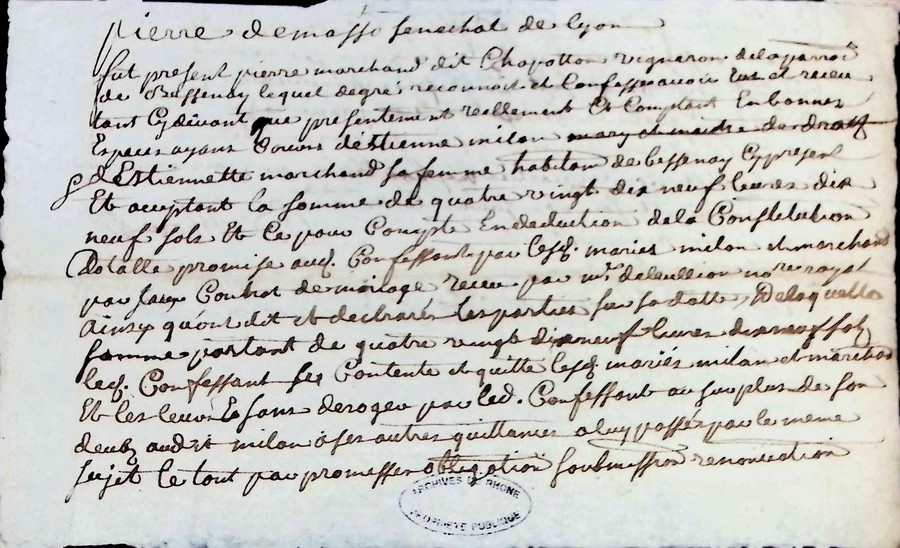 pierre demasso senechal de Lyon
fut present pierre marchand dit Chapotton vigneron dela parroi
de Bessenay lequel degre reconnoit et Confesse avoir eut et receu
tant Cy devant que presentement reellement Et Comptant En bonnes
Especes ayans Cours d'Estienne milon mary et maitre des droits
d'Estiennette marchand sa femme habitan de bessenay Cy present
Et aceptant la somme de quatre vingt dix neuf livres dix
neuf sols Et Ce pour Compte En deduction dela Constitution
Dotalle promise aud. Confessant par lesd. maries milon et marchand
par leur Contrat de mariage receu par mr. notre royal
Ainsy qu'ont dit et declarés les parties sur sa datte, De laquelle
somme portant de quatre vingt dix neuf livres dix neuf sols
led. Confessant se Contente et quitte lesd. mariés milon et marchand
Et les leurs Et sans deroger par led. Confessant au surplus de son
deub audit milon à ses autres quittances a luy passés par le meme
sujet le tout par promesses obligation soubmission renonciation
ARCHIVES DU RHONE
PROPRIÉTÉ PUBLIQUE